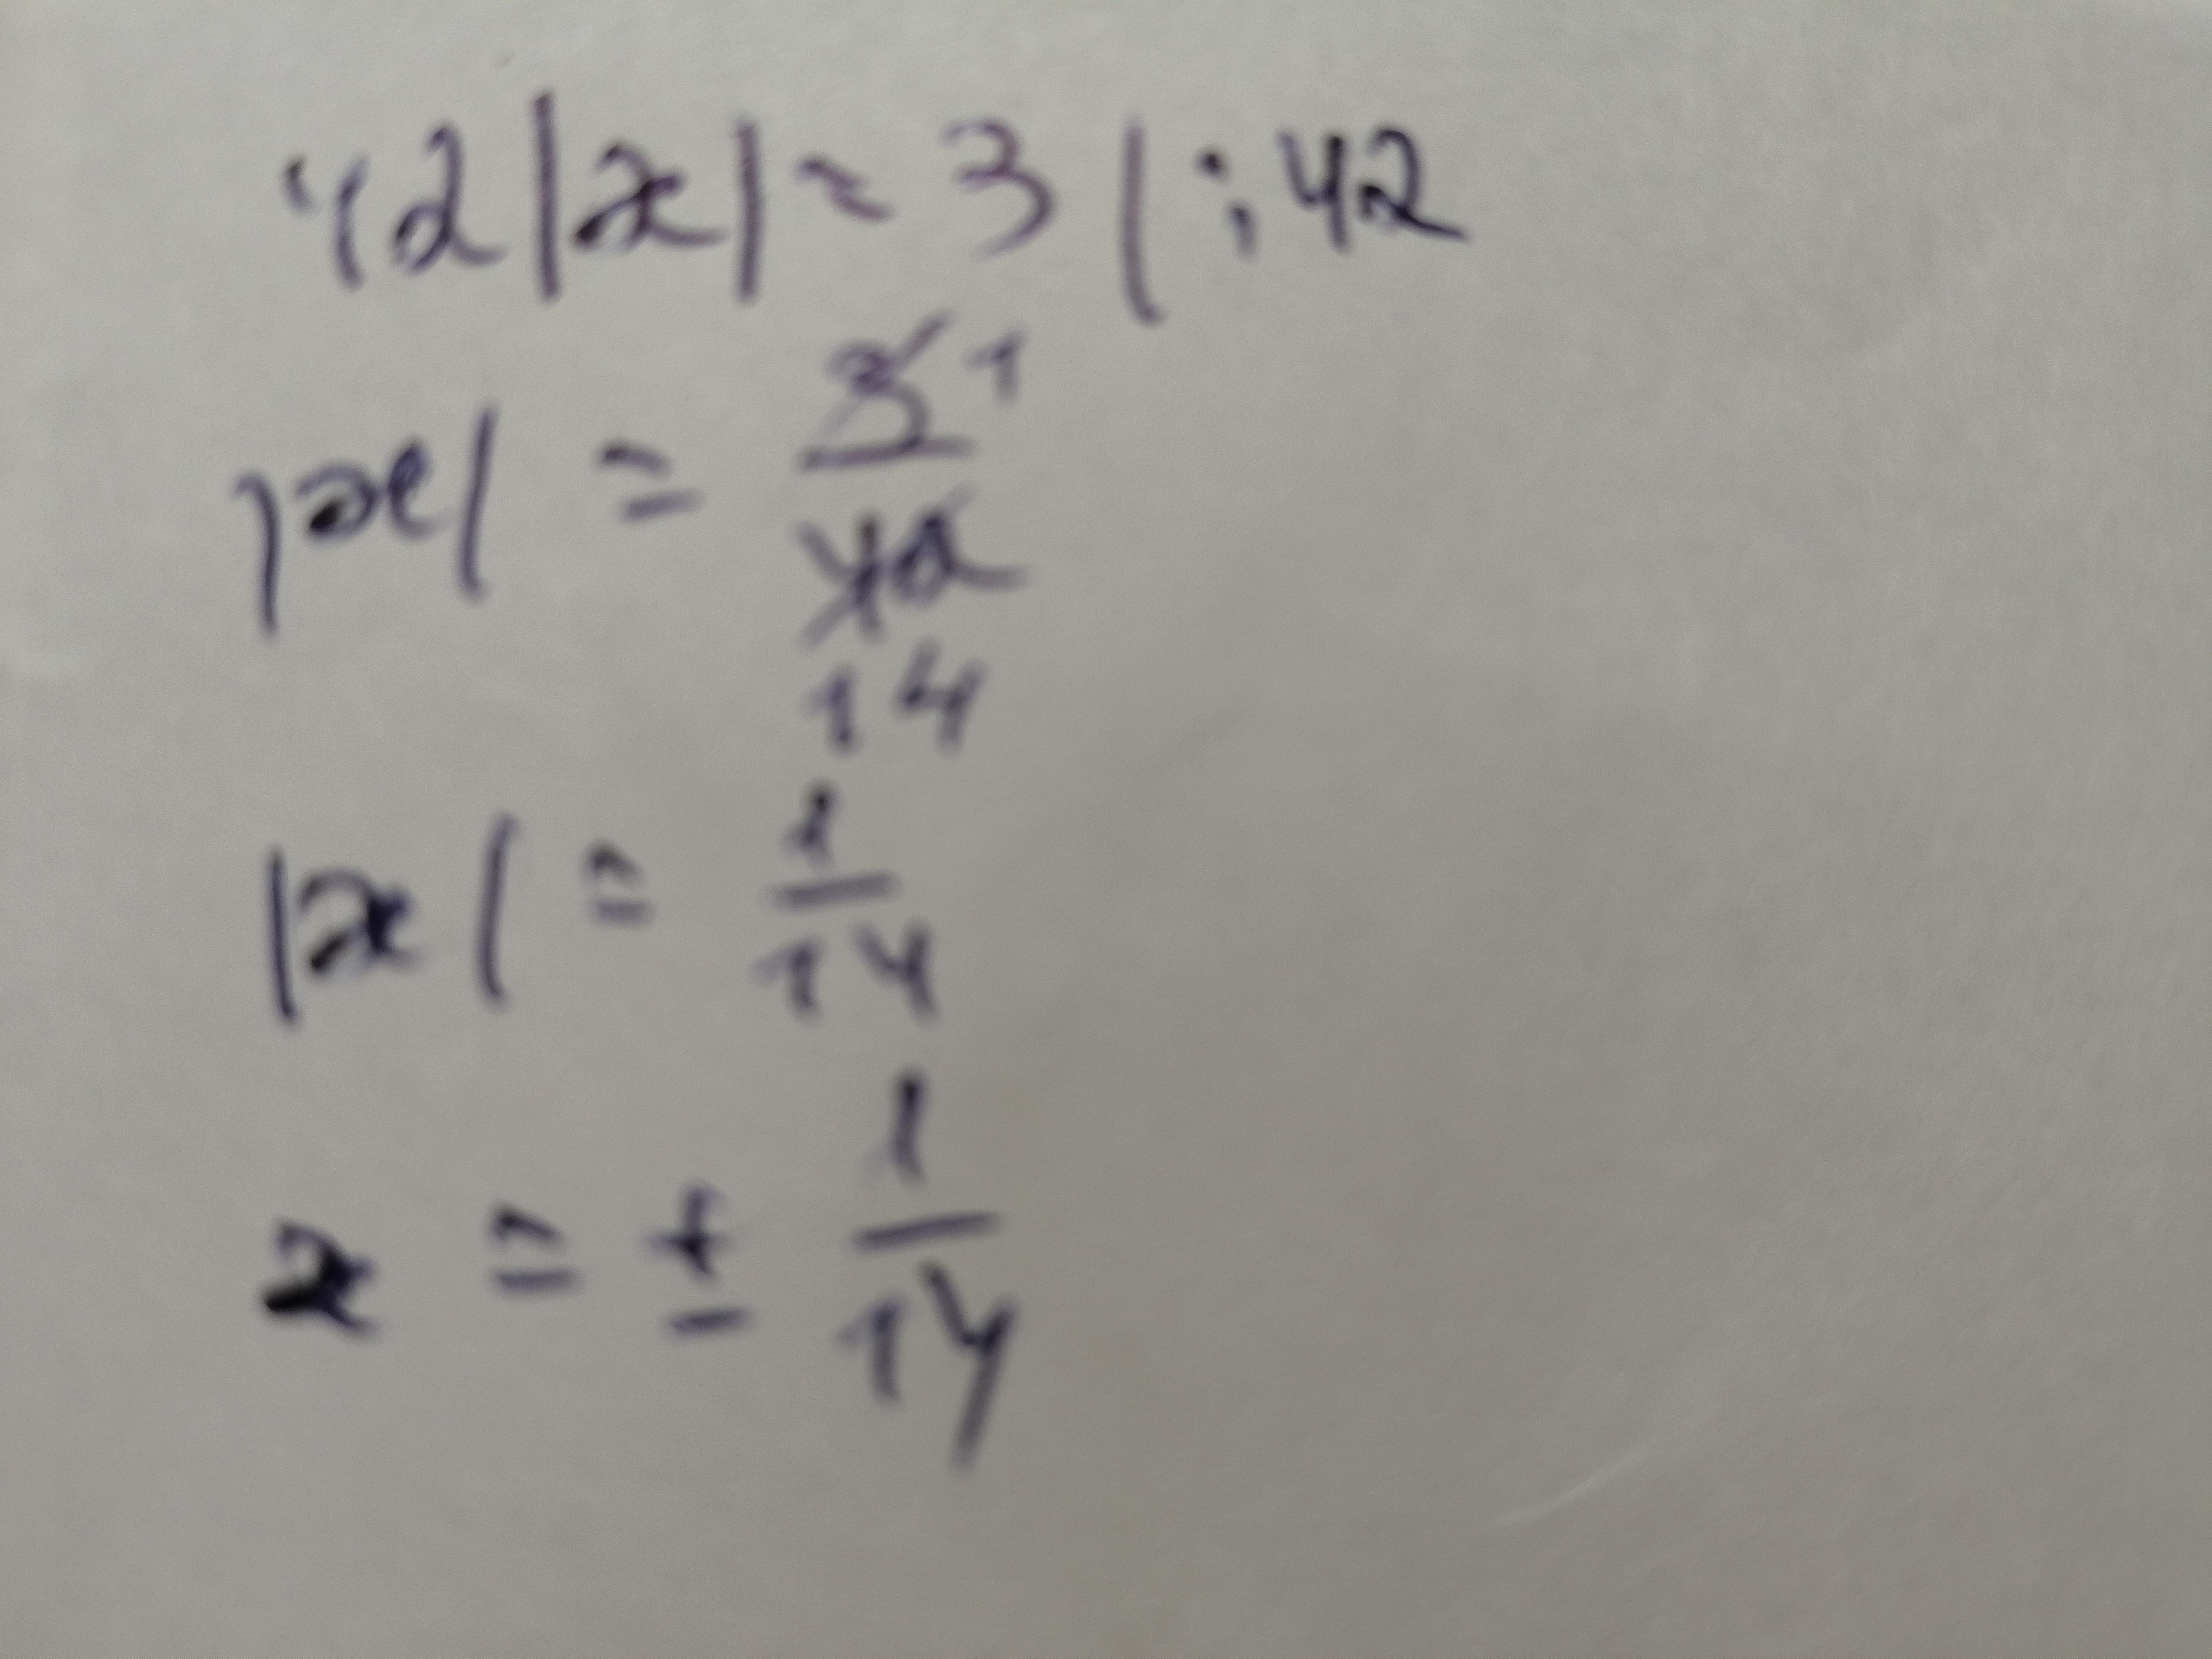 42|x| = 3 | : 42
|x| = 3 1 / 42 14
|x| = 1/14
x = ± 1/14